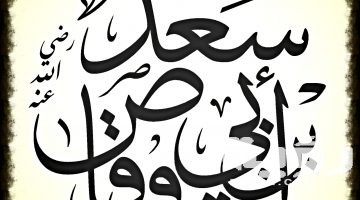 سعد
بن أبي وقاص
رضي الله عنه